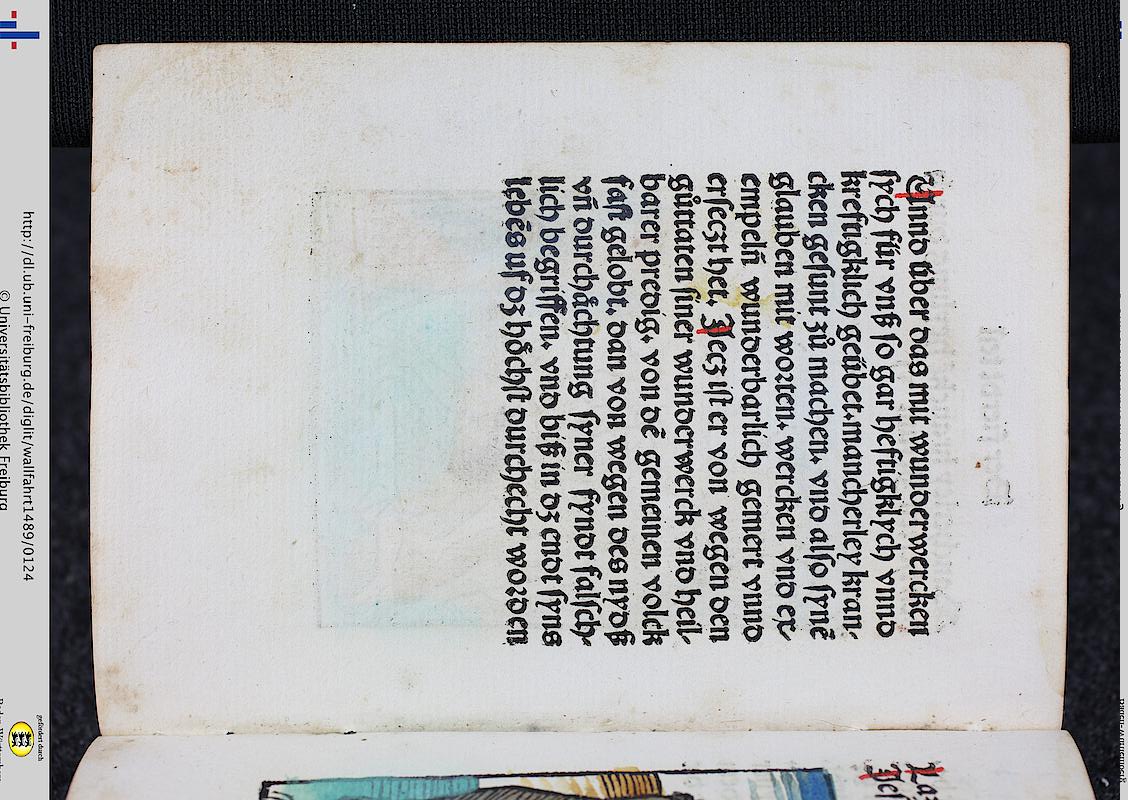 Vnnd über das mit wunderwercken
sych für vnß so gar hefftigklych vnnd
krefftigklich geübet. mancherley kran-
cken gesunt zů machen. vnd also synē
glauben mit worten. wercken vnd ex-
empeln̄ wunderbarlich gemert vnnd
erseczt het. Jecz ist er von wegen den
gůttaten siner wunderwerck vnd heil-
barer predig. von dē gemeinen volck
fast gelobt. dan von wegen des nydß
vn̄ durchåchtung syner fyndt falsch-
lich begriffen. vnd biß in dz endt syns
lebēs uf dz hôchst durchecht worden
La
Jes
http://dl.ub.uni-freiburg.de/diglit/wallfahrt1489/0124
© Universitätsbibliothek Freiburg
gefördert durch